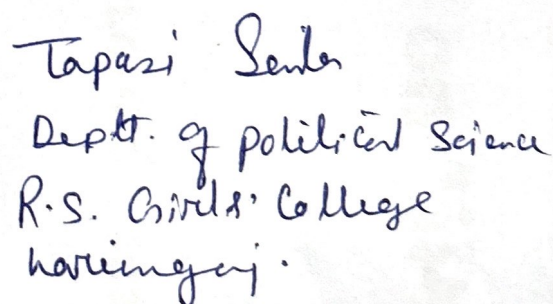 Tapasi Sinha
Deptt. of political Science
R.S. Girls' College
Karimganj.